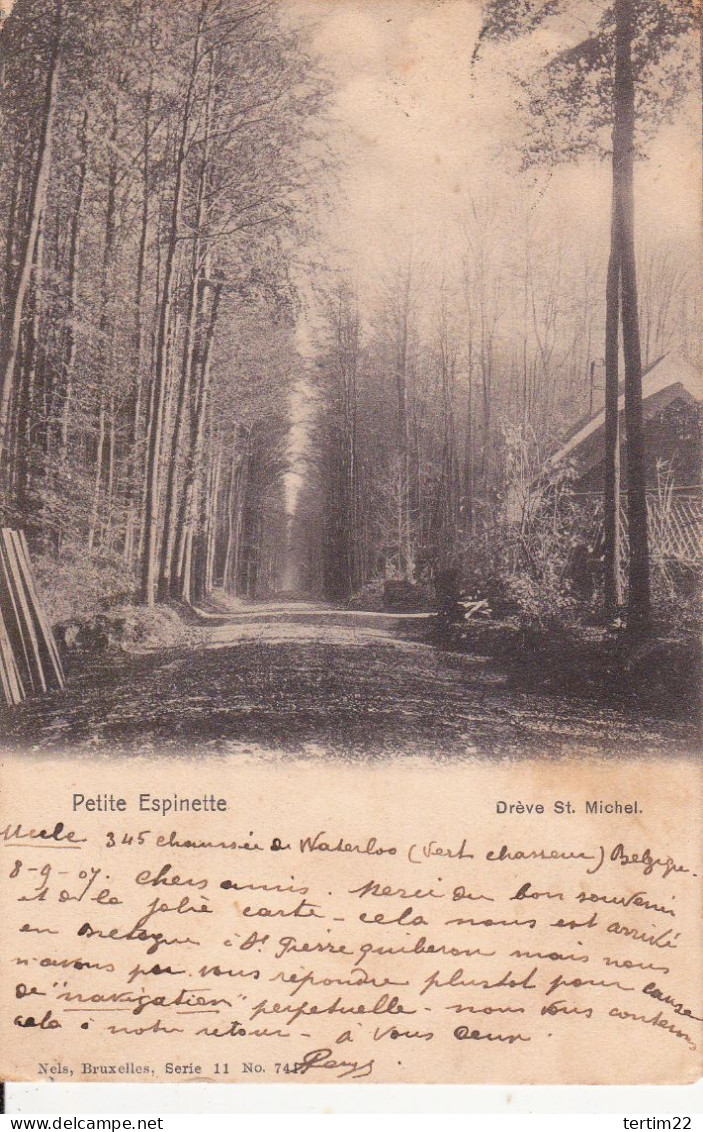 Petite Espinette
Drève St. Michel.
Uccle 345 chaussée de Waterloo (Vert chasseur) Belgique.
8-9-07. Chers amis. Merci du bon souvenir
et de la jolie carte - cela nous est arrivé
en Bretagne à St Pierre quiberon mais nous
n'avons pu vous répondre plustot pour cause
de "navigation" perpetuelle - nous vous conterons
cela à notre retour - à vous deux.
Nels, Bruxelles, Serie 11 No. 74
tertim22